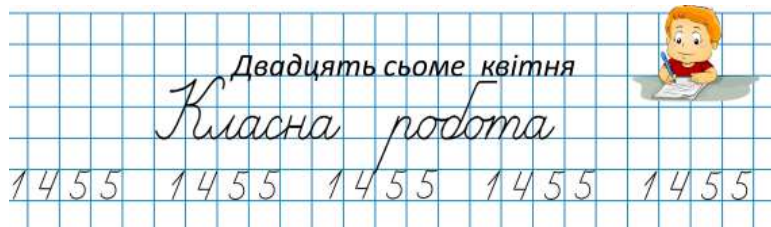 Двадцять сьоме квітня
Класна робота
1455 1455 1455 1455 1455